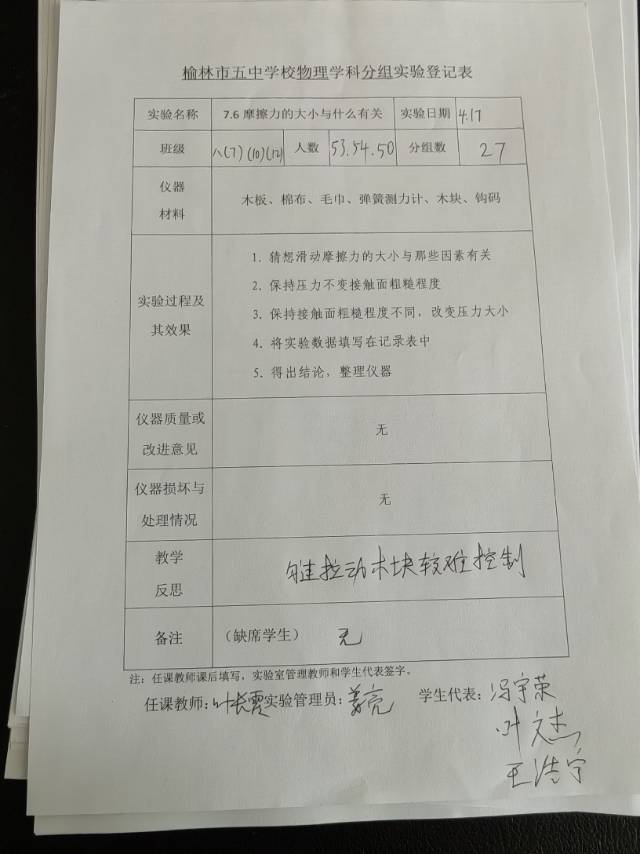 榆林市五中学校物理学科分组实验登记表
实验名称 7.6 摩擦力的大小与什么有关 实验日期 4.17
班级 八(7)(10)(12) 人数 53.54.50 分组数 27
仪器
材料
木板、棉布、毛巾、弹簧测力计、木块、钩码
实验过程及
其效果
1. 猜想滑动摩擦力的大小与那些因素有关
2. 保持压力不变接触面粗糙程度
3. 保持接触面粗糙程度不同，改变压力大小
4. 将实验数据填写在记录表中
5. 得出结论，整理仪器
仪器质量或
改进意见
无
仪器损坏与
处理情况
无
教学
反思
拉动木块较难控制
备注 （缺席学生） 无
注：任课教师课后填写，实验室管理教师和学生代表签字。
任课教师：叶长霞 实验管理员：姜亮 学生代表：冯宇荣
叶文杰
王浩宇